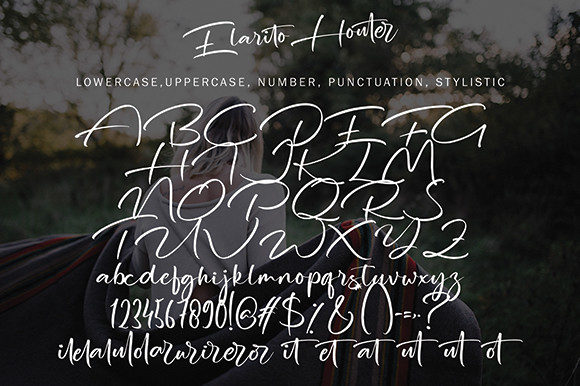 Elarito Houter
LOWERCASE,UPPERCASE, NUMBER, PUNCTUATION, STYLISTIC
A B C D E F G
H I J K L M
N O P Q R S
T U V W X Y Z
abcdefghijklmnopqrstuvwxyz
1234567890!@#$%&()-=,.?
ilelalulolarurireror it et at ut ut ot